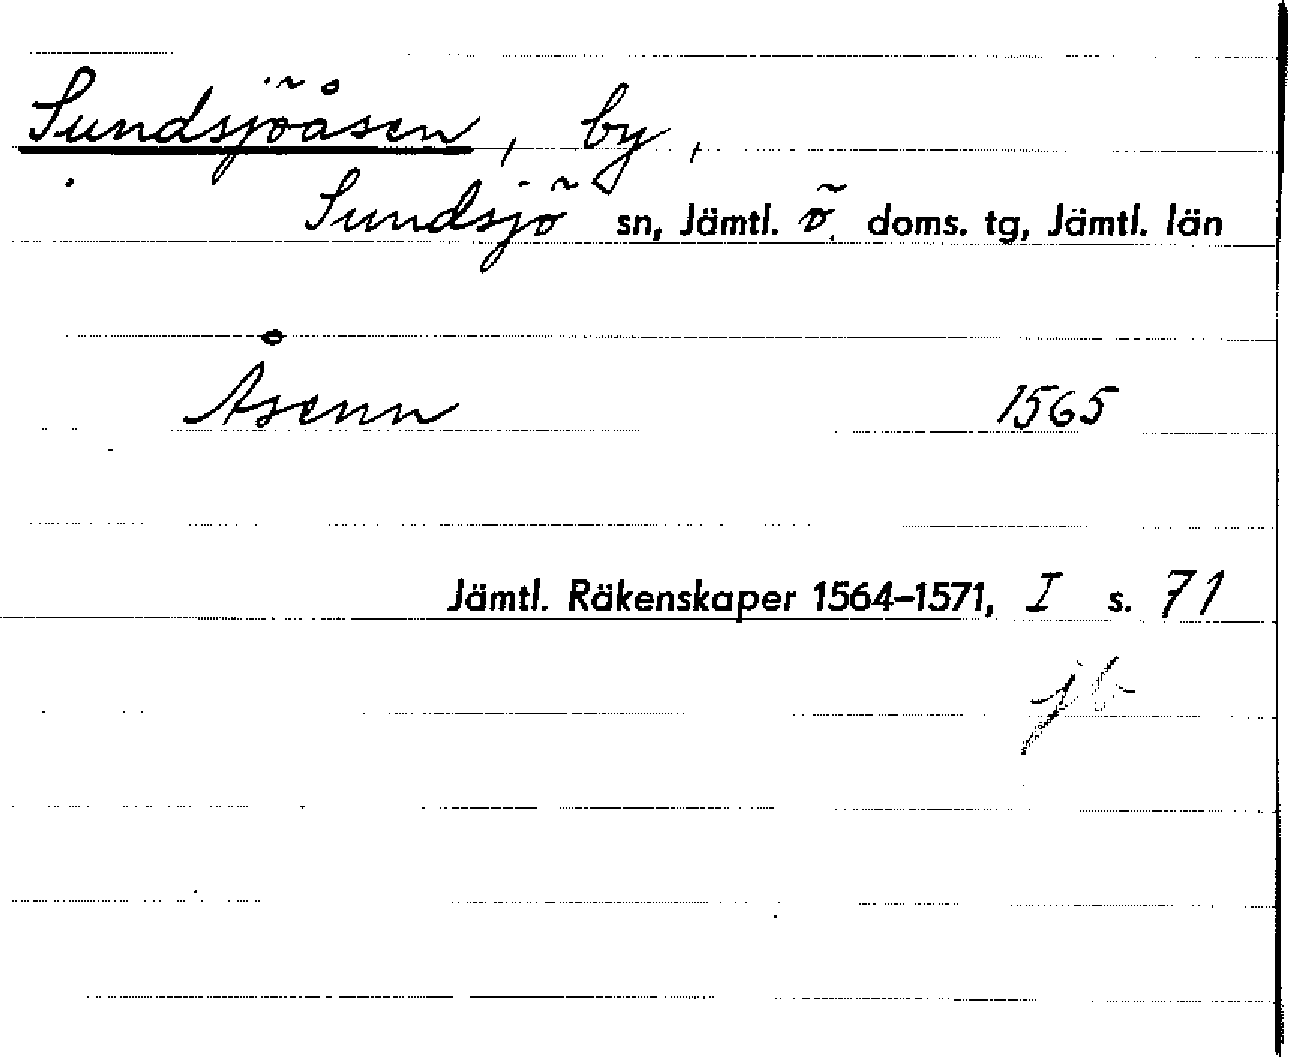 Sundsjöåsen, by,
Sundsjö sn, Jämtl. ö. doms. tg, Jämtl. län
Åsenn 1565
Jämtl. Räkenskaper 1564–1571, I s. 71
jb